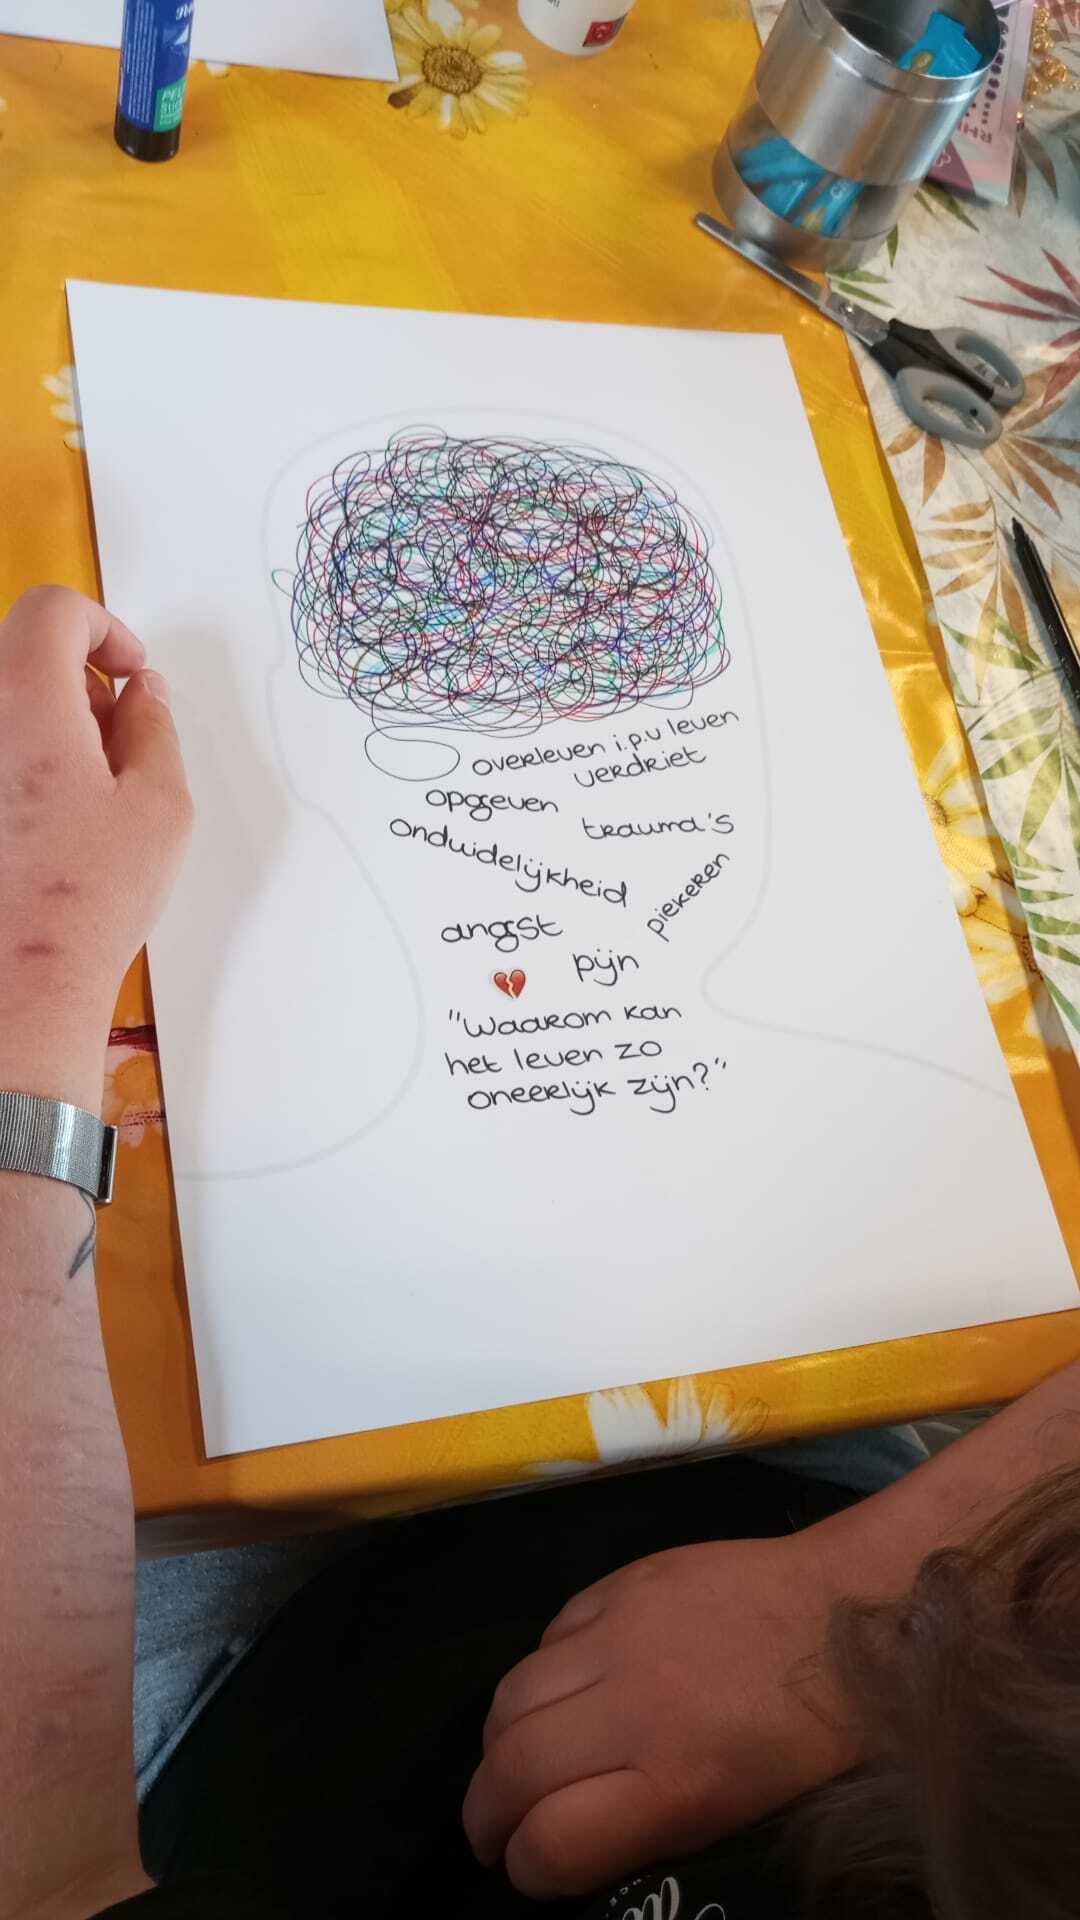 overleven i.p.v leven
verdriet
opgeven
trauma's
onduidelijkheid
piekeren
angst
pijn
"Waarom kan
het leven zo
oneerlijk zijn?"